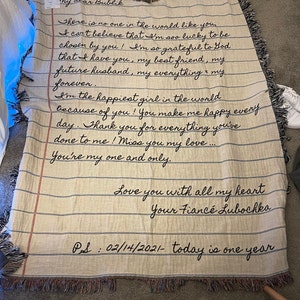 My dear Bubbik
There is no one in the world like you
I can't believe that I'm soo lucky to be
chosen by you! I'm so grateful to God
that I have you, my best friend, my
future husband, my everything & my
forever.
I'm the happiest girl in the world
because of you! You make me happy every
day. Thank you for everything you've
done to me! Miss you my love...
You're my one and only.
Love you with all my heart
Your Fiancé Lubochka
P.S : 02/14/2021- today is one year